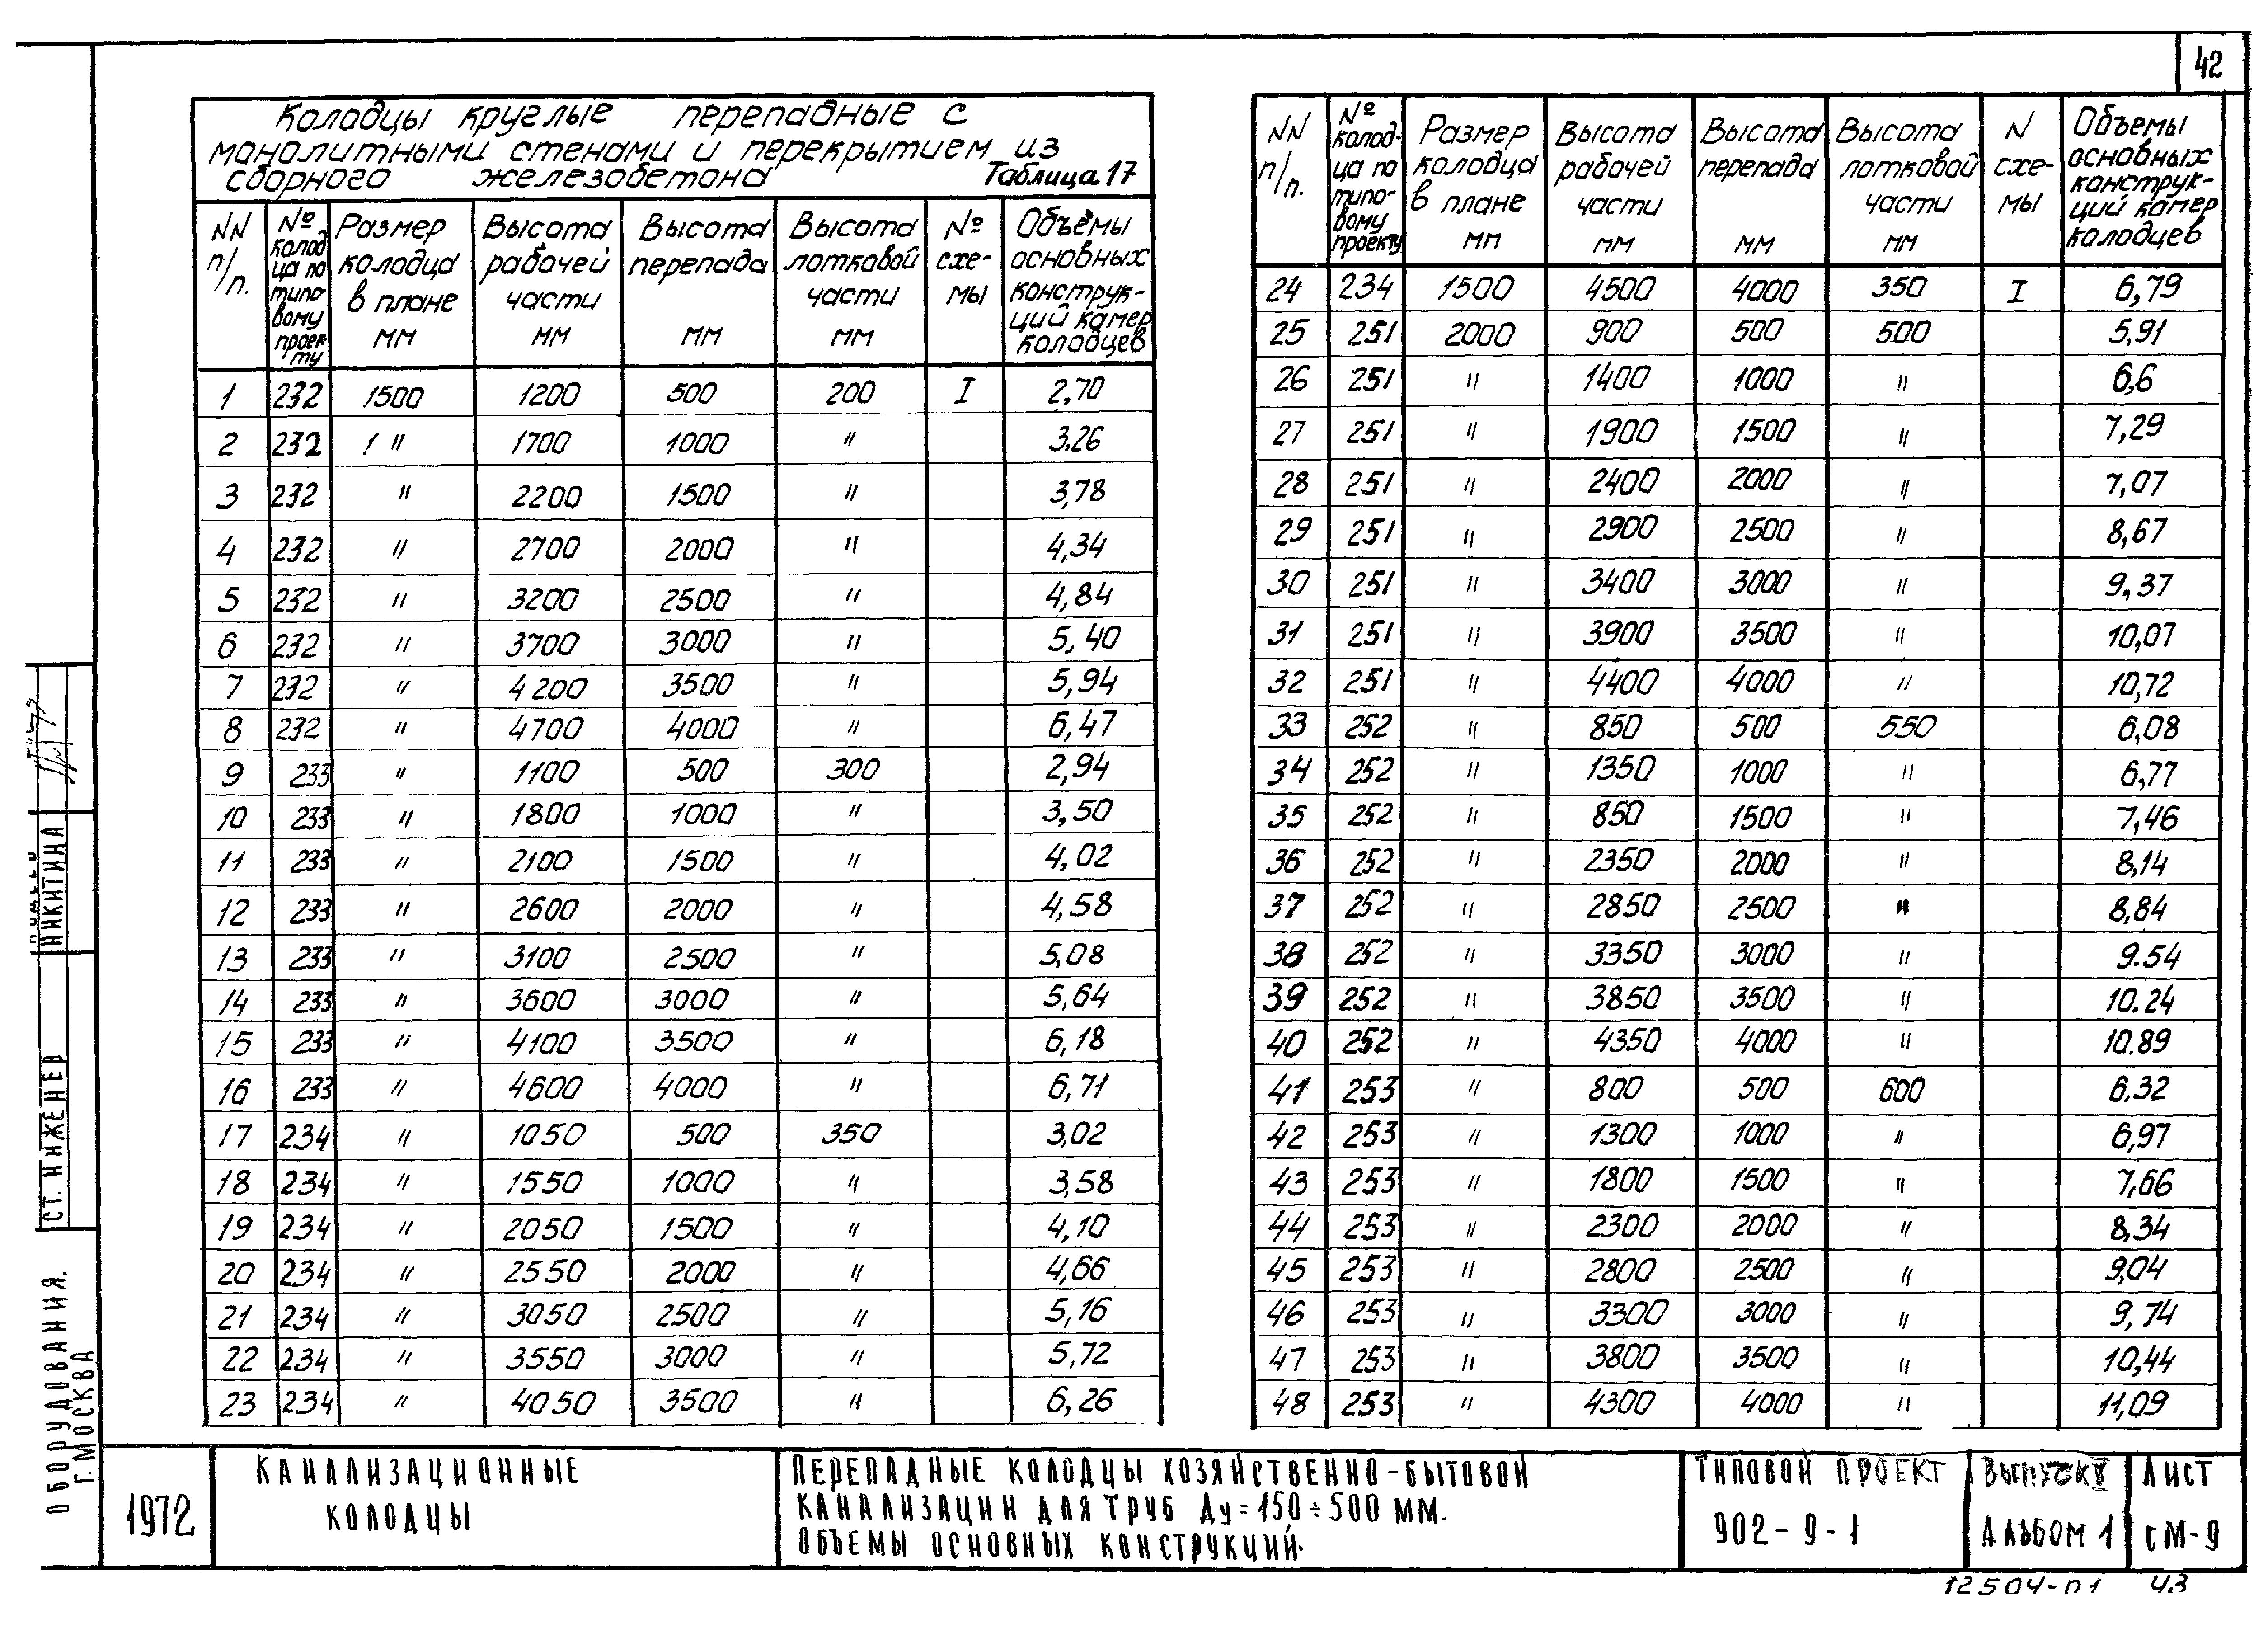 42
Колодцы круглые перепадные с
монолитными стенами и перекрытием из
сборного железобетона Таблица 17
NN п/п. №колодца по типовому проекту Размер колодца в плане мм Высота рабочей части мм Высота перепада мм Высота лотковой части мм № схе-мы Объёмы основных конструк-ций камер колодцев
1 232 1500 1200 500 200 I 2,70
2 232 1 " 1700 1000 " 3.26
3 232 " 2200 1500 " 3,78
4 232 " 2700 2000 " 4,34
5 232 " 3200 2500 " 4,84
6 232 " 3700 3000 " 5,40
7 232 " 4200 3500 " 5,94
8 232 " 4700 4000 " 6,47
9 233 " 1100 500 300 2,94
10 233 " 1800 1000 " 3,50
11 233 " 2100 1500 " 4,02
12 233 " 2600 2000 " 4,58
13 233 " 3100 2500 " 5,08
14 233 " 3600 3000 " 5,64
15 233 " 4100 3500 " 6,18
16 233 " 4600 4000 " 6,71
17 234 " 1050 500 350 3,02
18 234 " 1550 1000 " 3,58
19 234 " 2050 1500 " 4,10
20 234 " 2550 2000 " 4,66
21 234 " 3050 2500 " 5,16
22 234 " 3550 3000 " 5,72
23 234 " 4050 3500 " 6,26
NN п/п. № колод-ца по типо-вому проекту Размер колодца в плане мм Высота рабочей части мм Высота перепада мм Высота лотковой части мм N схе-мы Объемы основных конструк-ций камер колодцев
24 234 1500 4500 4000 350 I 6,79
25 251 2000 900 500 500 5,91
26 251 " 1400 1000 " 6,6
27 251 " 1900 1500 " 7,29
28 251 " 2400 2000 " 7,07
29 251 " 2900 2500 " 8,67
30 251 " 3400 3000 " 9,37
31 251 " 3900 3500 " 10,07
32 251 " 4400 4000 " 10,72
33 252 " 850 500 550 6,08
34 252 " 1350 1000 " 6,77
35 252 " 850 1500 " 7,46
36 252 " 2350 2000 " 8,14
37 252 " 2850 2500 " 8,84
38 252 " 3350 3000 " 9.54
39 252 " 3850 3500 " 10.24
40 252 " 4350 4000 " 10.89
41 253 " 800 500 600 6.32
42 253 " 1300 1000 " 6,97
43 253 " 1800 1500 " 7,66
44 253 " 2300 2000 " 8,34
45 253 " 2800 2500 " 9,04
46 253 " 3300 3000 " 9,74
47 253 " 3800 3500 " 10,44
48 253 " 4300 4000 " 11,09
НИКИТИНА
СТ. ИНЖЕНЕР
ОБОРУДОВАНИЯ.
Г. МОСКВА
1972
КАНАЛИЗАЦИОННЫЕ
КОЛОДЦЫ
ПЕРЕПАДНЫЕ КОЛОДЦЫ ХОЗЯЙСТВЕННО-БЫТОВОЙ
КАНАЛИЗАЦИИ ДЛЯ ТРУБ Ду=150÷500 ММ.
ОБЪЕМЫ ОСНОВНЫХ КОНСТРУКЦИЙ.
ТИПОВОЙ ПРОЕКТ
902-9-1
АЛЬБОМ 1
ЛИСТ
СМ-9
12504-01 43